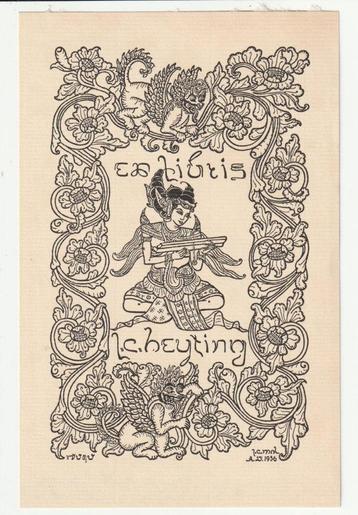 ex libris
l.c. heyting
A.D. 1936